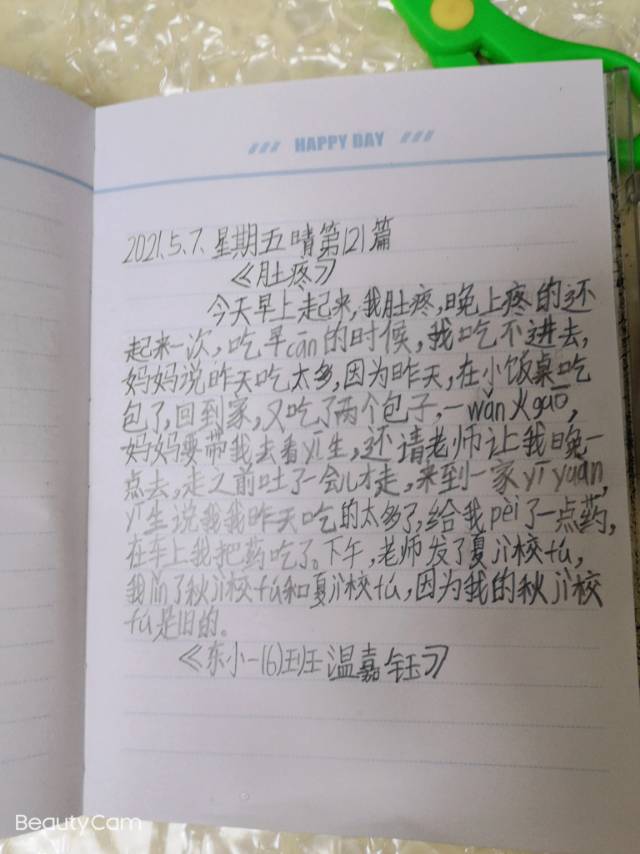 HAPPY DAY
2021.5.7.星期五晴第121篇
《肚疼》
今天早上走起来,我肚疼,晚上疼的还
起来一次,吃早cān的时候,我吃不进去,
妈妈说昨天吃太多,因为昨天,在小饭桌吃
包了,回到家,又吃了两个包子,一wǎn火gāo,
妈妈要带我去看yī生,还请老师让我晚一
点去,走之前吐了一会儿才走,来到一家yī yuàn,
yī生说我我昨天吃的太多了,给我pèi了一点药,
在车上我把药吃了。下午,老师发了夏jì校fú,
我lǐn了秋jì校fú和夏jì校fú,因为我的秋jì校
fú是旧的。
《东小一(6)班 温嘉钰》
BeautyCam